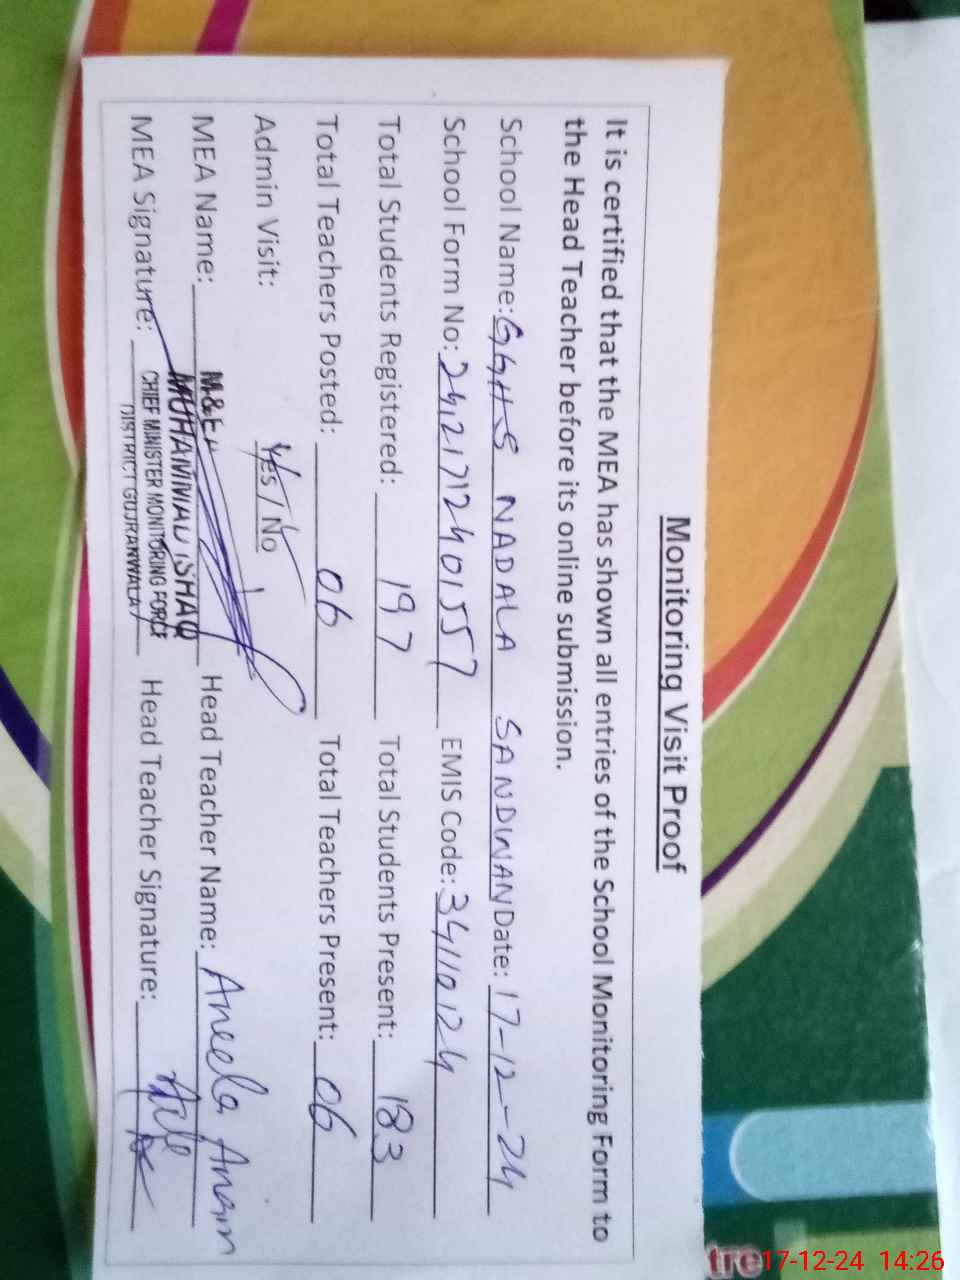 Monitoring Visit Proof
It is certified that the MEA has shown all entries of the School Monitoring Form to
the Head Teacher before its online submission.
School Name: GGHS NADALA SANDWAN Date: 17-12-24
School Form No: 24,21712401557 EMIS Code: 34110124
Total Students Registered: 197 Total Students Present: 183
Total Teachers Posted: 06 Total Teachers Present: 06
Admin Visit: Yes / No
MEA Name: M&EA MUHAMMAD ISHAQ Head Teacher Name: Aneela Anam
MEA Signature: CHIEF MINISTER MONITORING FORCE Head Teacher Signature:
DISTRICT GUJRANWALA
tre
17-12-24 14:26